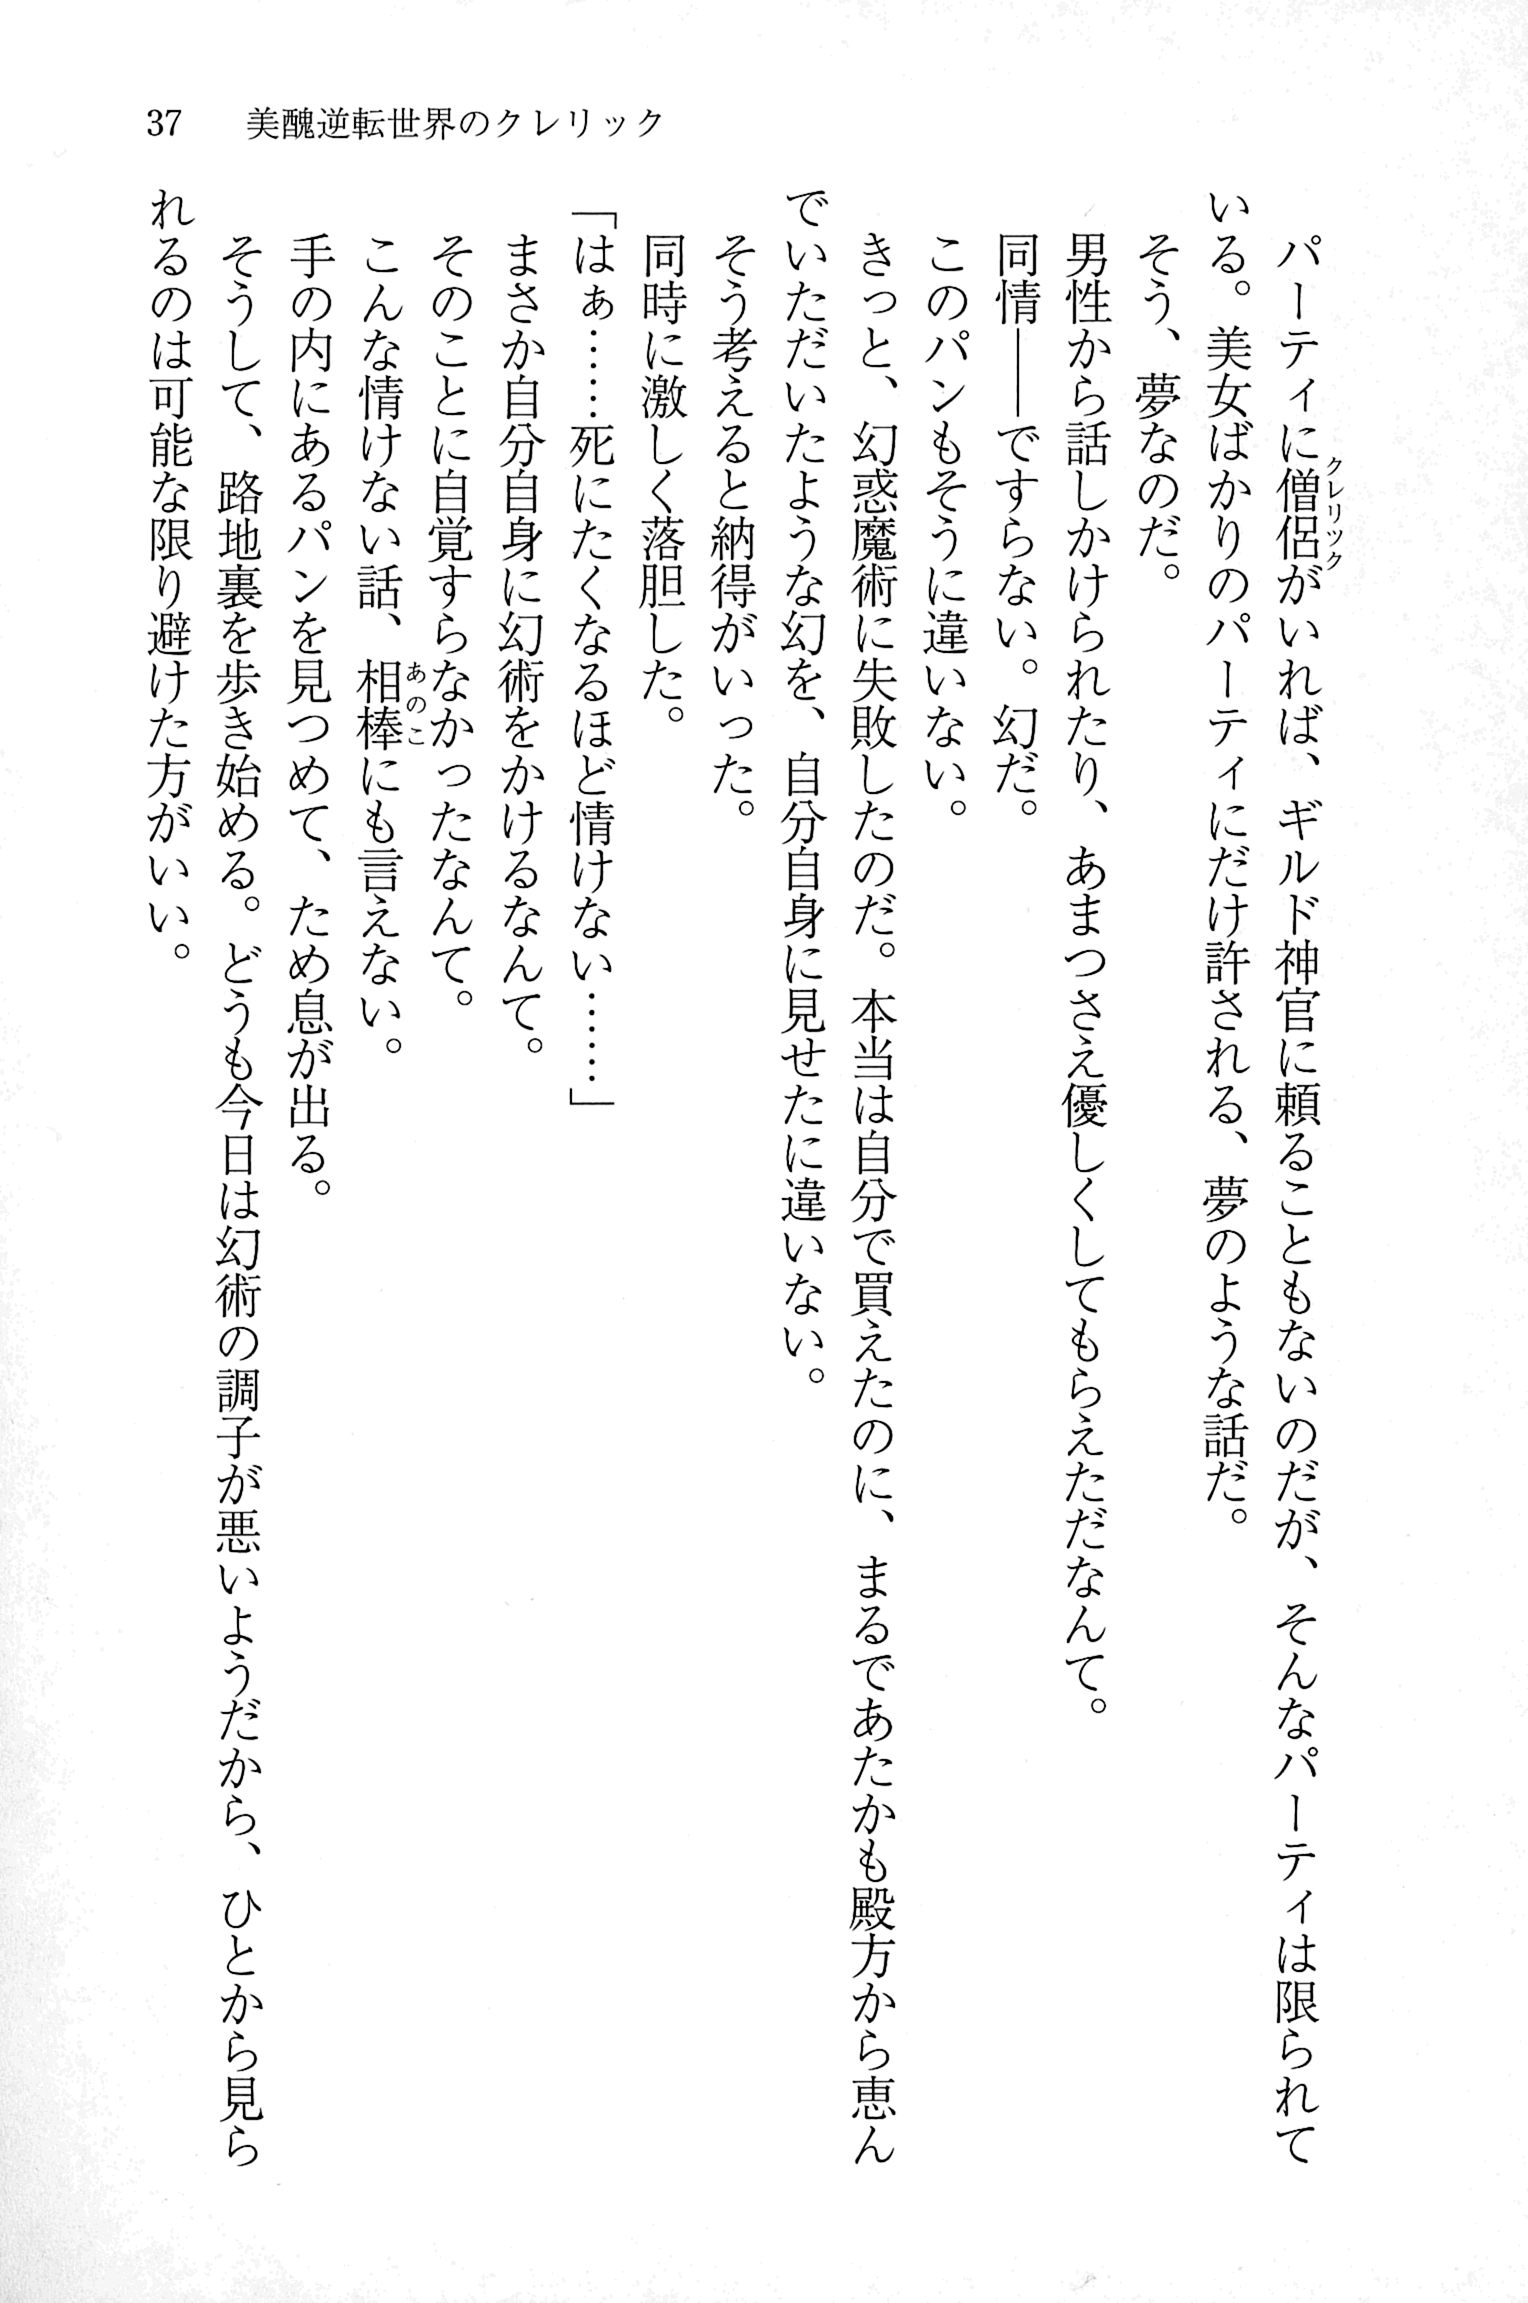 37 美醜逆転世界のクレリック
　パーティに僧侶がいれば、ギルド神官に頼ることもないのだが、そんなパーティは限られて
クレリック
いる。美女ばかりのパーティにだけ許される、夢のような話だ。
　そう、夢なのだ。
　男性から話しかけられたり、あまつさえ優しくしてもらえただなんて。
　同情――ですらない。幻だ。
　このパンもそうに違いない。
　きっと、幻惑魔術に失敗したのだ。本当は自分で買えたのに、まるであたかも殿方から恵ん
でいただいたような幻を、自分自身に見せたに違いない。
　そう考えると納得がいった。
　同時に激しく落胆した。
「はぁ……死にたくなるほど情けない……」
　まさか自分自身に幻術をかけるなんて。
　そのことに自覚すらなかったなんて。
　こんな情けない話、相棒にも言えない。
あのこ
　手の内にあるパンを見つめて、ため息が出る。
　そうして、路地裏を歩き始める。どうも今日は幻術の調子が悪いようだから、ひとから見ら
れるのは可能な限り避けた方がいい。